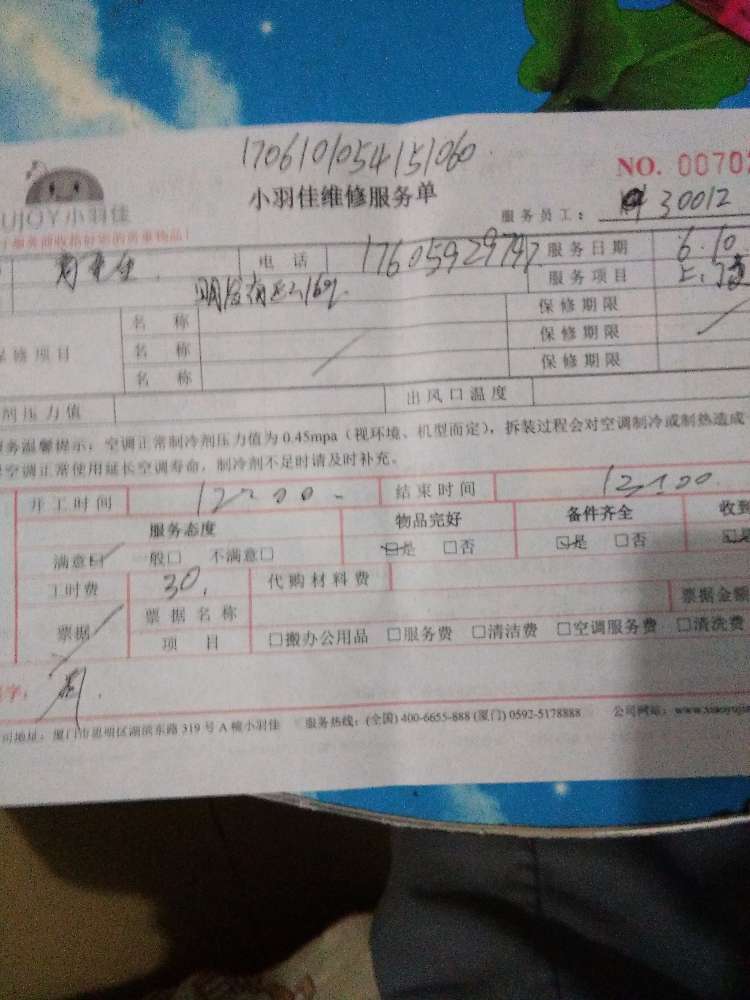 1706101054151060
NO. 0070
UJOY小羽佳
小羽佳维修服务单
服务员工: 30012
电 话 17605929742 服务日期 6.10
服务项目
保修期限
名 称
保修项目 名 称 保修期限
名 称 保修期限
剂压力值 出风口温度
务温馨提示:空调正常制冷剂压力值为 0.45mpa(视环境、机型而定),拆装过程会对空调制冷或制热造成
空调正常使用延长空调寿命,制冷剂不足时请及时补充。
开工时间 12:00 结束时间 12:00
服务态度 物品完好 备件齐全 收到
满意□ 一般□ 不满意□ □是 □否 □是 □否
工时费 30. 代购材料费
票据 票据名称 票据金额
项 目 □搬办公用品 □服务费 □清洁费 □空调服务费 □清洗费
字:
司地址:厦门市思明区湖滨东路 319 号 A 幢小羽佳 服务热线:(全国) 400-6655-888 (厦门) 0592-5178888 公司网站:www.xiaoyuj